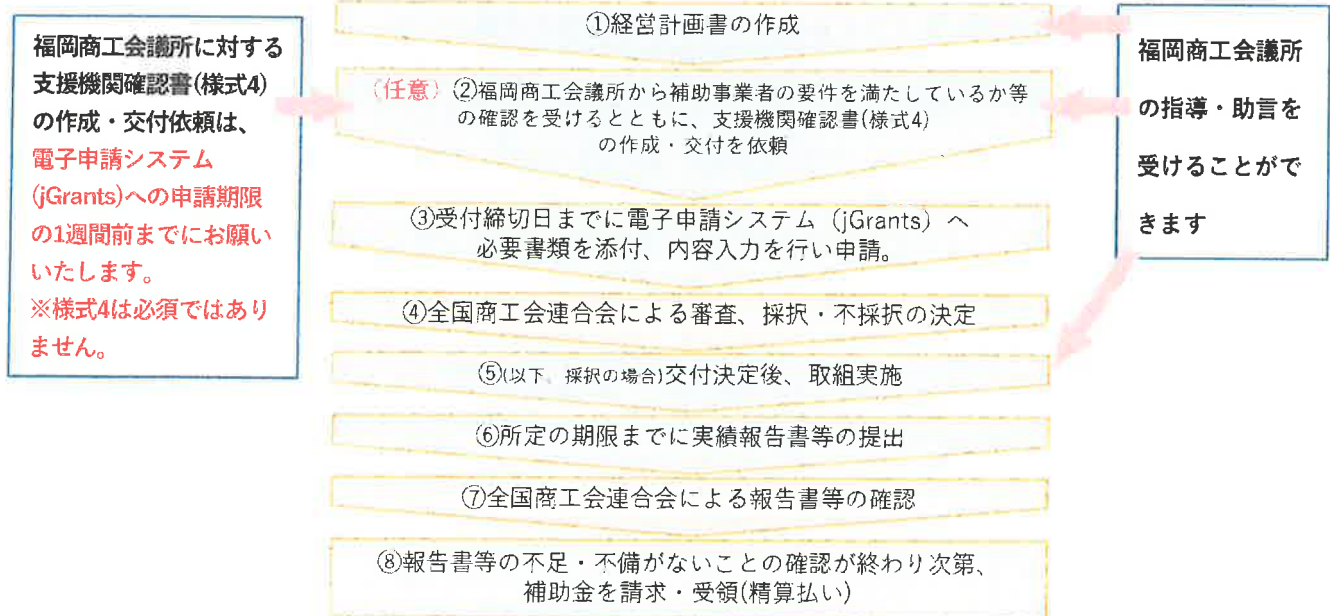 福岡商工会議所に対する
支援機関確認書(様式4)
の作成・交付依頼は、
電子申請システム
(jGrants)への申請期限
の1週間前までにお願い
いたします。
※様式4は必須ではあり
ません。
①経営計画書の作成
(任意) ②福岡商工会議所から補助事業者の要件を満たしているか等
の確認を受けるとともに、支援機関確認書(様式4)
の作成・交付を依頼
③受付締切日までに電子申請システム（jGrants）へ
必要書類を添付、内容入力を行い申請。
④全国商工会連合会による審査、採択・不採択の決定
⑤(以下、採択の場合)交付決定後、取組実施
⑥所定の期限までに実績報告書等の提出
⑦全国商工会連合会による報告書等の確認
⑧報告書等の不足・不備がないことの確認が終わり次第、
補助金を請求・受領(精算払い)
福岡商工会議所
の指導・助言を
受けることがで
きます